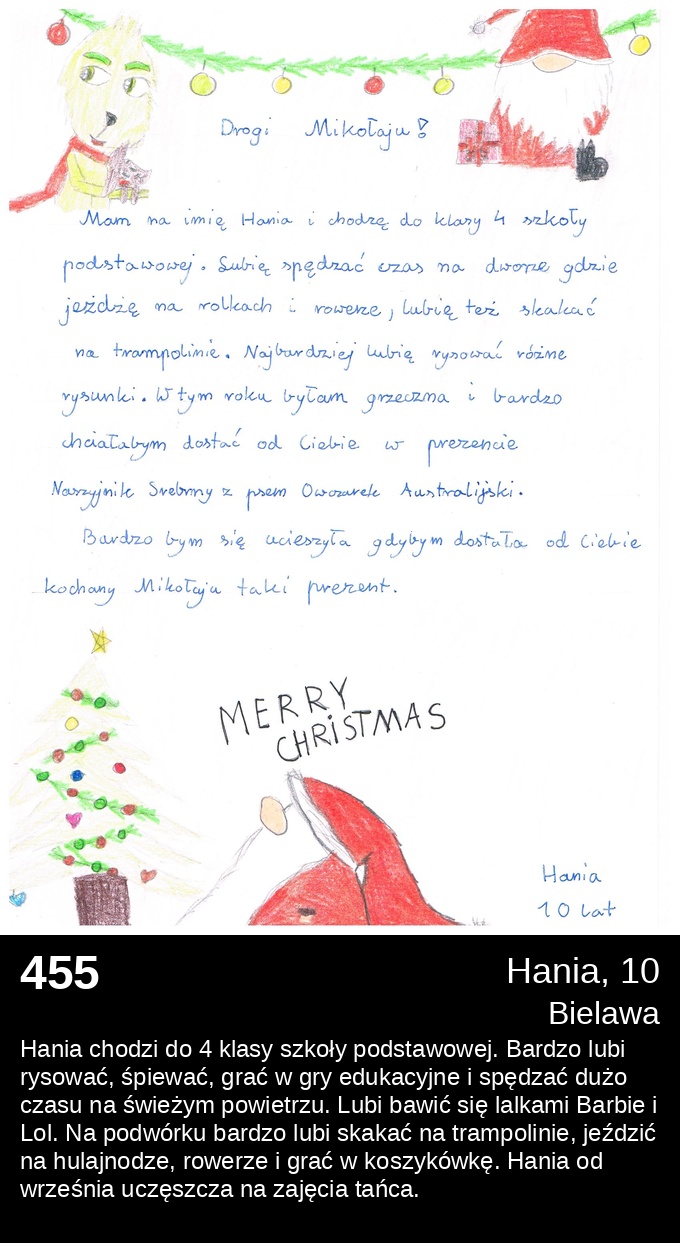 Drogi Mikołaju!
Mam na imię Hania i chodzę do klasy 4 szkoły
podstawowej. Lubię spędzać czas na dworze gdzie
jeżdżę na rolkach i rowerze, lubię też skakać
na trampolinie. Najbardziej lubię rysować różne
rysunki. W tym roku byłam grzeczna i bardzo
chciałabym dostać od Ciebie w prezencie
Naszyjnik Srebrny z psem Owczarek Australijski.
Bardzo bym się ucieszyła gdybym dostała od Ciebie
kochany Mikołaju taki prezent.
MERRY
CHRISTMAS
Hania
10 lat
455
Hania, 10
Bielawa
Hania chodzi do 4 klasy szkoły podstawowej. Bardzo lubi
rysować, śpiewać, grać w gry edukacyjne i spędzać dużo
czasu na świeżym powietrzu. Lubi bawić się lalkami Barbie i
Lol. Na podwórku bardzo lubi skakać na trampolinie, jeździć
na hulajnodze, rowerze i grać w koszykówkę. Hania od
września uczęszcza na zajęcia tańca.